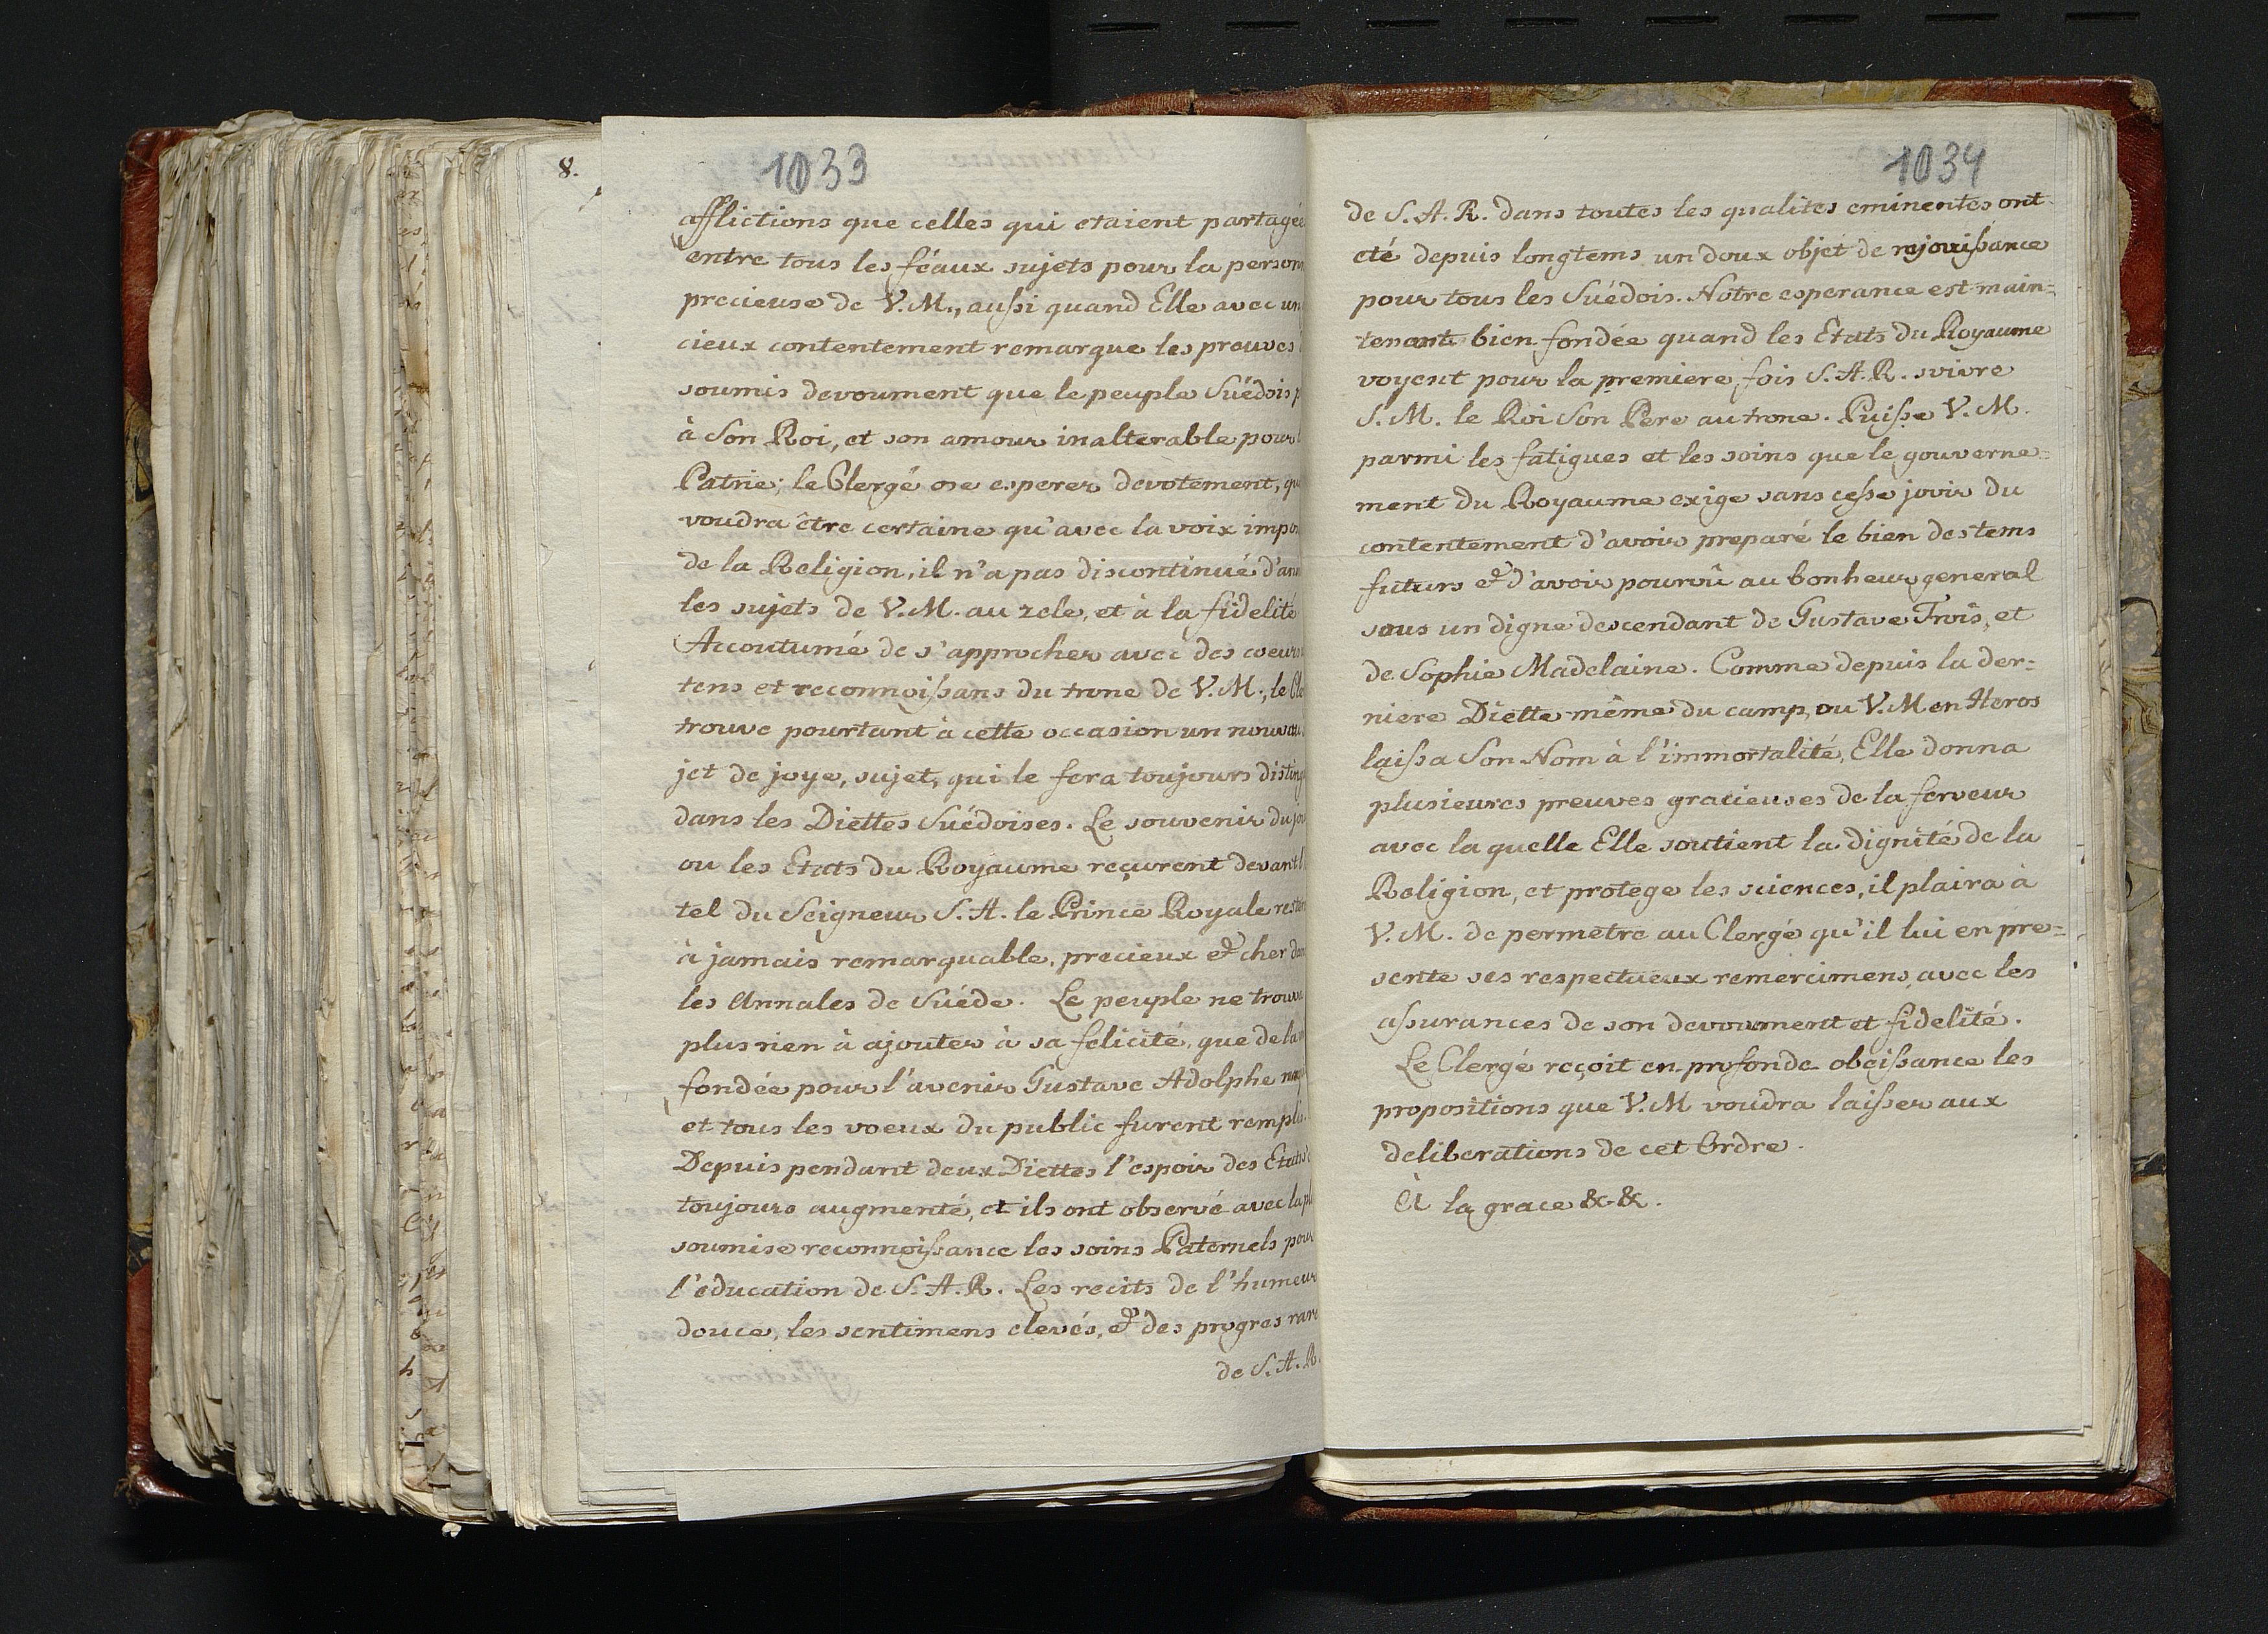 8.
1033
afflictions que celles qui etaient partagée
entre tous les féaux sujets pour la person
precieuse de V. M., aussi quand Elle avec un
cieux contentement remarque les preuves
soumis devoument que le peuple Suédois p
à Son Roi, et son amour inalterable pour
Patrie; le Clergé ose esperer devotement, qu
voudra être certaine qu'avec la voix impo
de la Religion, il n'a pas discontinué d'an
les sujets de V. M. au zele, et à la fidelité
Accoutumé de s'approcher avec des coeurs
tens et reconnoissans du trone de V. M., le Cle
trouve pourtant à cette occasion un nouveau
jet de joye, sujet, qui le fera toujours disting
dans les Diettes Suédoises. Le souvenir du jou
ou les Etats du Royaume reçurent devant l
tel du Seigneur S. A. le Prince Royale rester
à jamais remarquable, precieux & cher dan
les Annales de Suéde. Le peuple ne trouva
plus rien à ajouter à sa felicité, que de la
fondée pour l'avenir Gustave Adolphe naq
et tous les voeux du public furent remplis.
Depuis pendant deux Diettes l'espoir des Etats
toujours augmenté, et ils ont observé avec la pl
soumise reconnoissance les soins Paternels pour
l'éducation de S. A. R. Les recits de l'humeur
douce, les sentimens elevés, & des progres rare
de S. A. R.
1034
de S. A. R. dans toutes les qualites eminentes ont
eté depuis longtems un doux objet de rejouissance
pour tous les Suédois. Notre esperance est main=
tenant bien fondée quand les Etats du Royaume
voyent pour la premiere fois S. A. R. suivre
S. M. le Roi Son Pere au trone. Puisse V. M.
parmi les fatigues et les soins que le gouverne=
ment du Royaume exige sans cesse jouir du
contentement d'avoir preparé le bien des tems
futurs & d'avoir pourvû au bonheur general
sous un digne descendant de Gustave Trois, et
de Sophie Madelaine. Comme depuis la der=
niere Diette même du camp, ou V. M en Heros
laissa Son Nom à l'immortalité, Elle donna
plusieures preuves gracieuses de la ferveur
avec la quelle Elle soutient la dignité de la
Religion, et protege les sciences, il plaira à
V. M. de permetre au Clergé qu'il lui en pre=
sente ses respectueux remercimens, avec les
assurances de son devoument et fidelité.
Le Clergé reçoit en profonde obeissance les
propositions que V. M voudra laisser aux
deliberations de cet Ordre.
à la grace &. &.